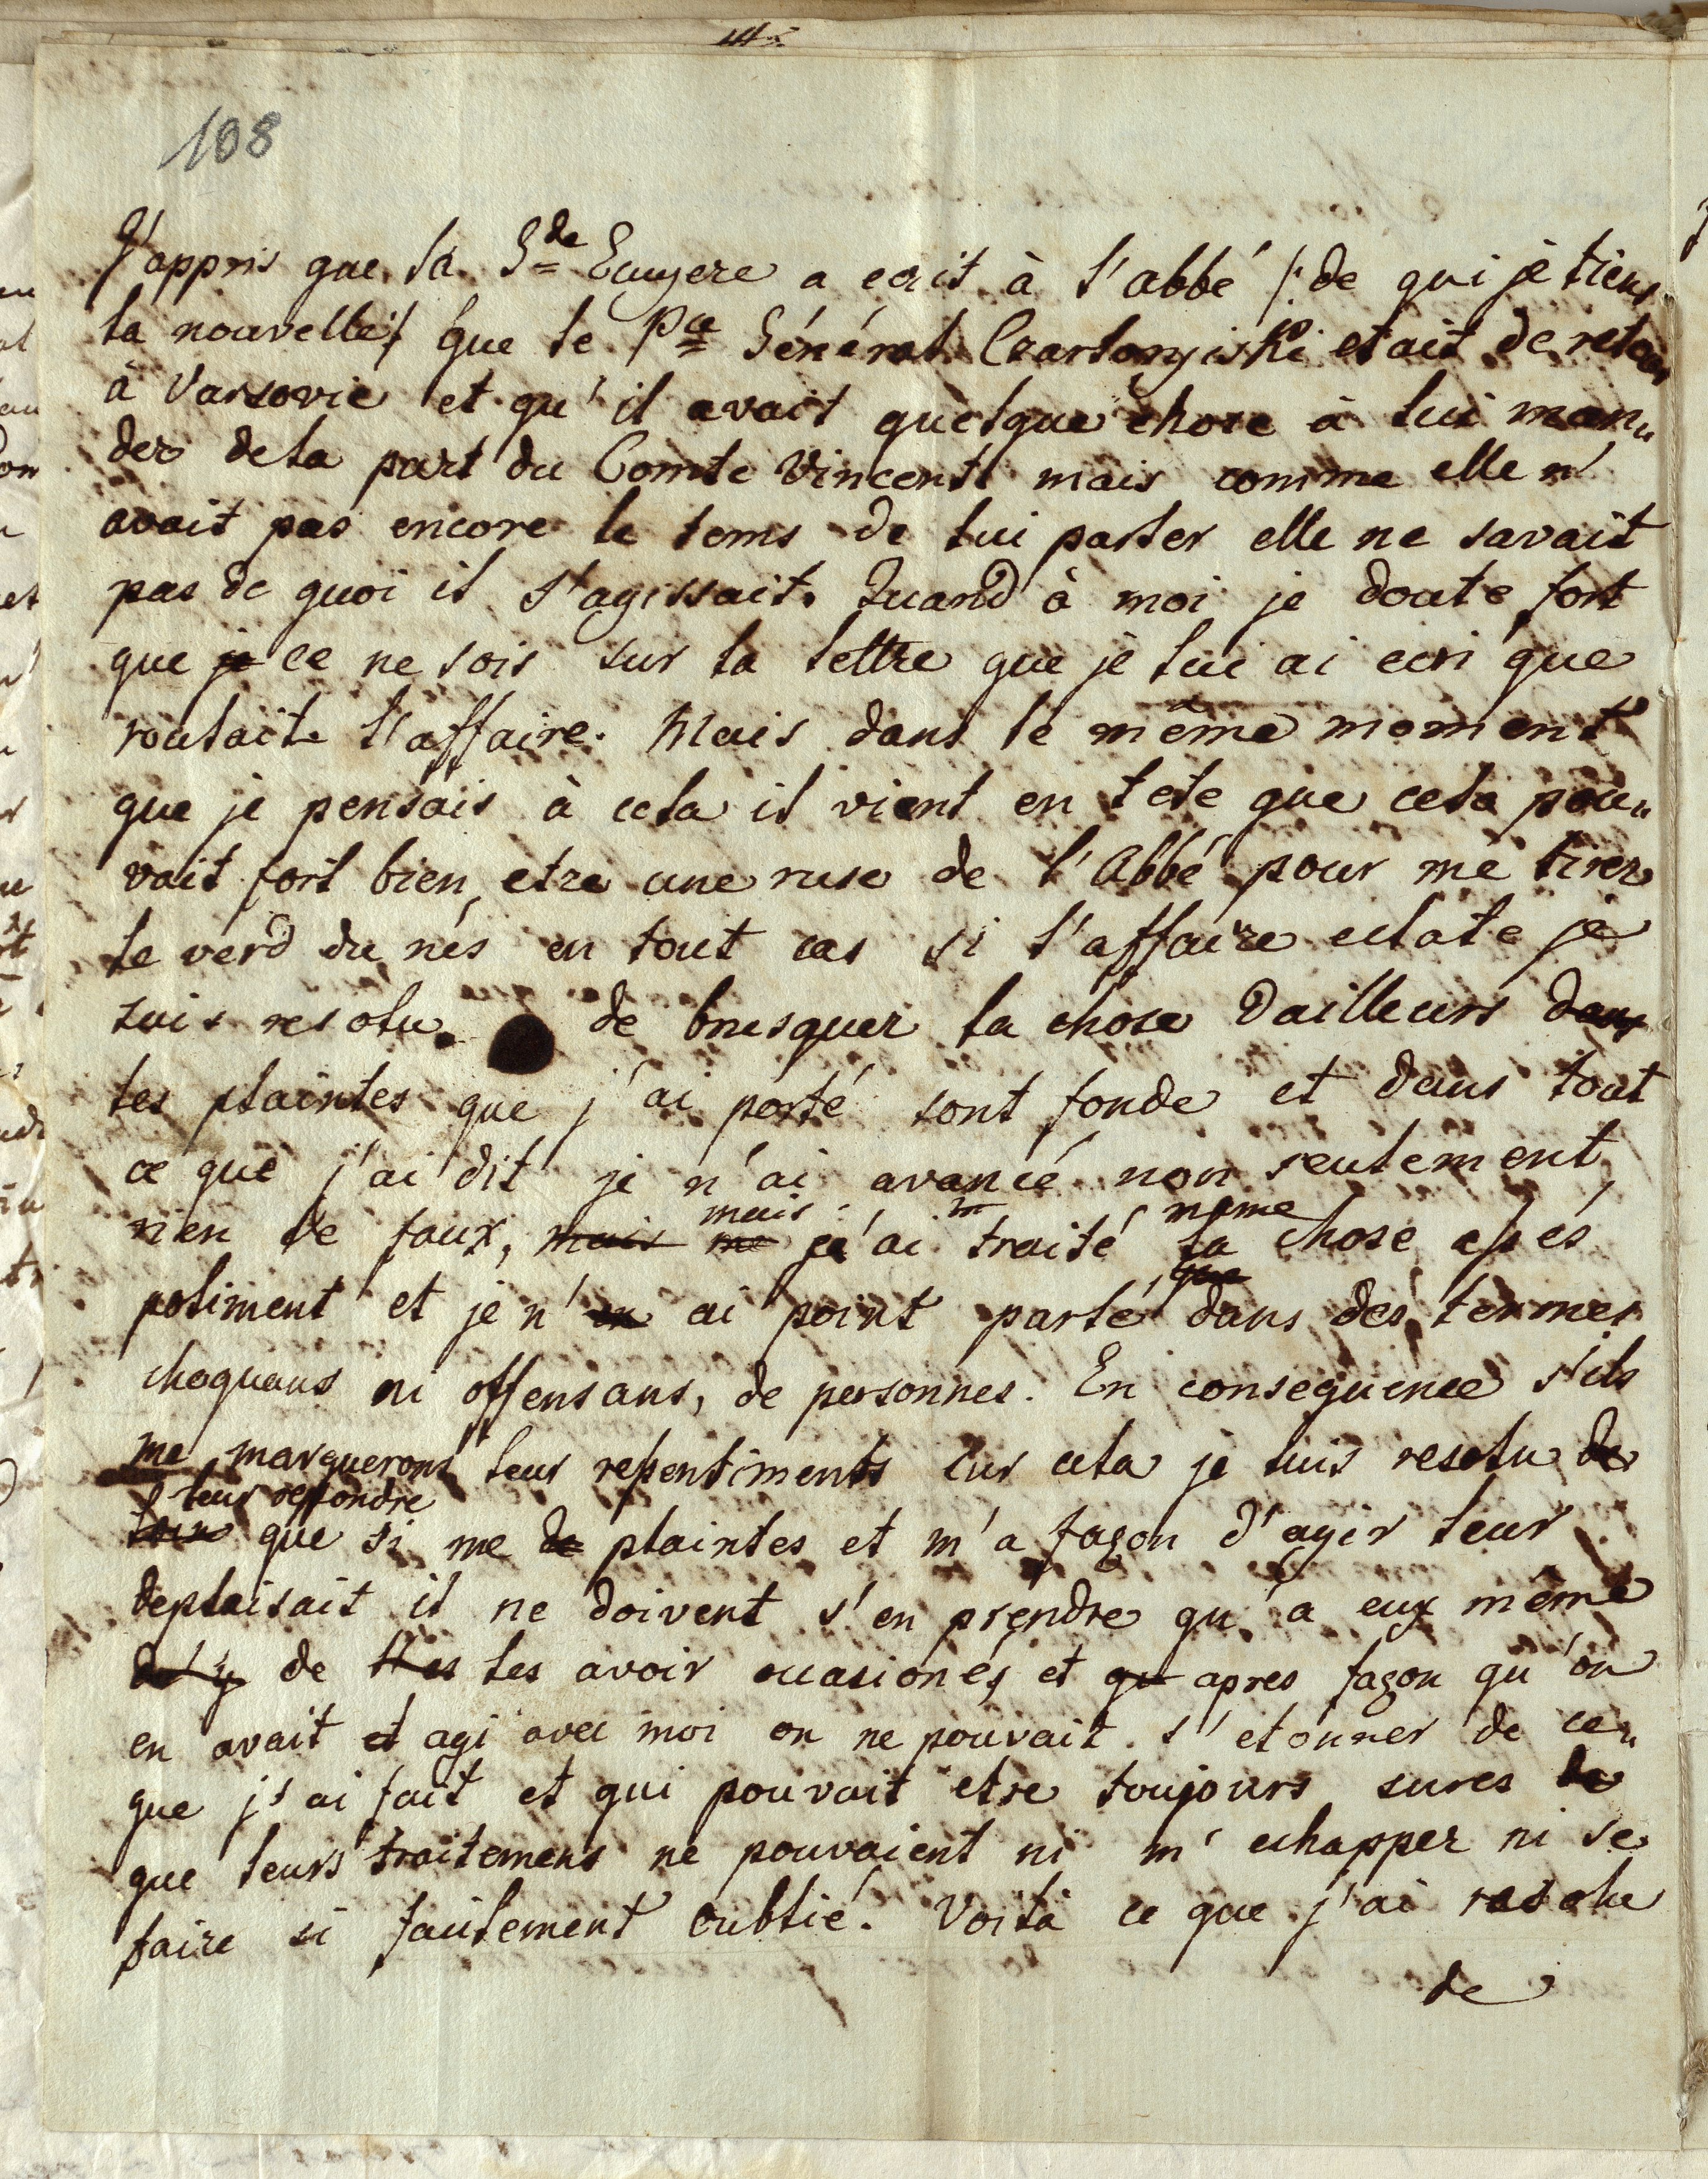 108
J'appris que la Gde Ecuyere a ecrit à l'abbé /: de qui je tiens
la nouvelle :/ que le Pce Général Czartoryiski etait de retour
à Varsovie et qu'il avait quelque chose à lui man„
der de la part du Comte Vincent mais comme elle n'
avait pas encore le tems de lui parler elle ne savait
pas de quoi il s'agissait. Quand à moi je doute fort
que je ce ne sois sur la lettre que je lui ai ecri que
roulait l'affaire. Mais dans le même moment
que je pensais à cela il vient en tete que cela pou„
vait fort bien etre une ruse de l'Abbé pour me tirer
le verd du nés en tout cas si l'affaire eclate je
suis resolu de brusquer la chose Dailleurs dans
les plaintes que j'ai porté sont fonde et dans tout
ce que j'ai dit je n'ai avancé non seulement
mais même
rien de faux, mais me j'ai traité la chose
que
poliment et je n'en ai point parlé dans des termes
choquans ni offensans, de personnes. En consequence s'ils
me marquerons leur resentiments sur cela je suis resolu de
leur repondre
que si me de plaintes et m'a façon d'agir leur
deplaisait il ne doivent s'en prendre qu'a eux même
de les avoir ocasionés et qu apres façon qu'on
en avait et agi avec moi on ne pouvait s'etonner de ce„
que j'ai fait et qui pouvait etre toujours sures de
que leurs traitemens ne pouvaient ni m'echapper ni se
faire si failement oublié. Voila ce que j'ai resolu
de